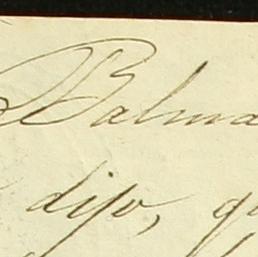 Balma
dijo, qu